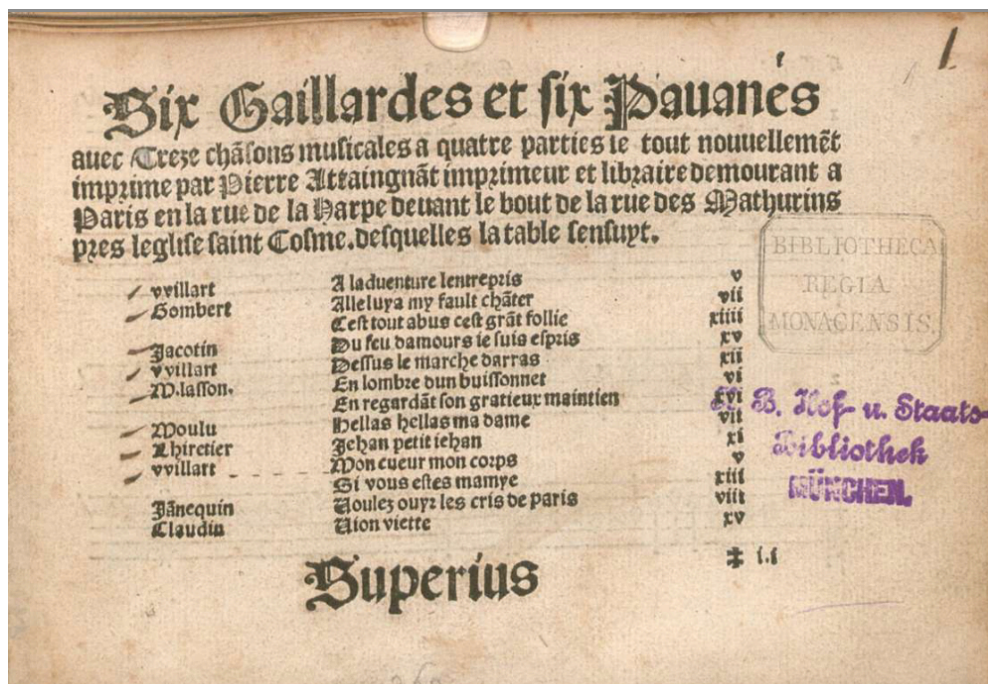 1
Six Gaillardes et six Pauanes
auec Treze chãsons musicales a quatre parties le tout nouuellemẽt
imprime par Pierre Attaingnãt imprimeur et libraire demourant a
Paris en la rue de la Harpe deuant le bout de la rue des Mathurins
pres leglise saint Cosme. desquelles la table sensuyt.
vvillart A laduenture lentrepris v
Gombert Alleluya my fault chãter vii
Cest tout abus cest grãt follie xiiii
Jacotin Du feu damours ie suis espris xv
vvillart Dessus le marche darras xii
M.lasson. En lombre dun buissonnet vi
En regardãt son gratieux maintien xvi
Moulu Hellas hellas ma dame vii
Lhiretier Jehan petit iehan xi
vvillart Mon cueur mon corps v
Si vous estes mamye xiii
Jãnequin Uoulez ouyr les cris de paris viii
Claudin Uion viette xv
Superius
‡ i.i
BIBLIOTHECA
REGIA
MONACENSIS.
K. B. Hof- u. Staats-
Bibliothek
MÜNCHEN.